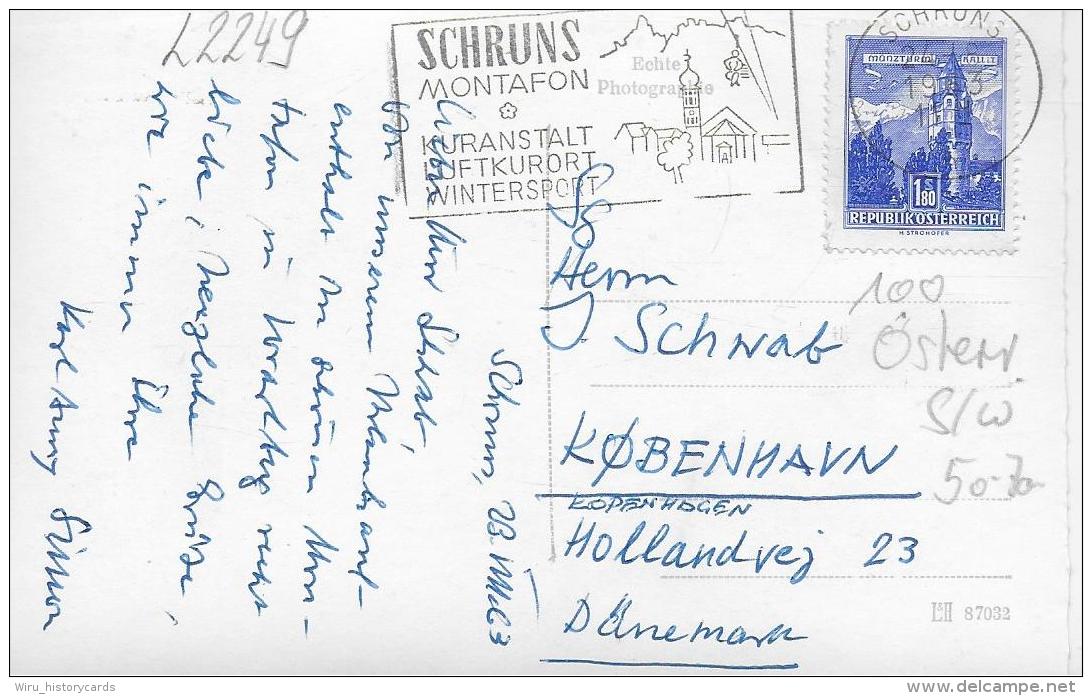 L2249
SCHRUNS
MONTAFON
KURANSTALT
LUFTKURORT
WINTERSPORT
Echte
Photographie
SCHRUNS
MÜNZTURM HALL I.T.
S
1.80
REPUBLIK ÖSTERREICH
H. STROHOFER
Schruns, 23.
von unserem Urlaubsauf-
enthalt im schönen Mon-
tafon in Vorarlberg recht
liebe, herzliche Grüße,
wie immer Ihre
Simon
Herrn
J. Schwab
KØBENHAVN
KOPENHAGEN
Hollandvej 23
Dänemark
100
Österr.
S/W
50-70
L&H 87032
Wiru_historycards
delcampe.net